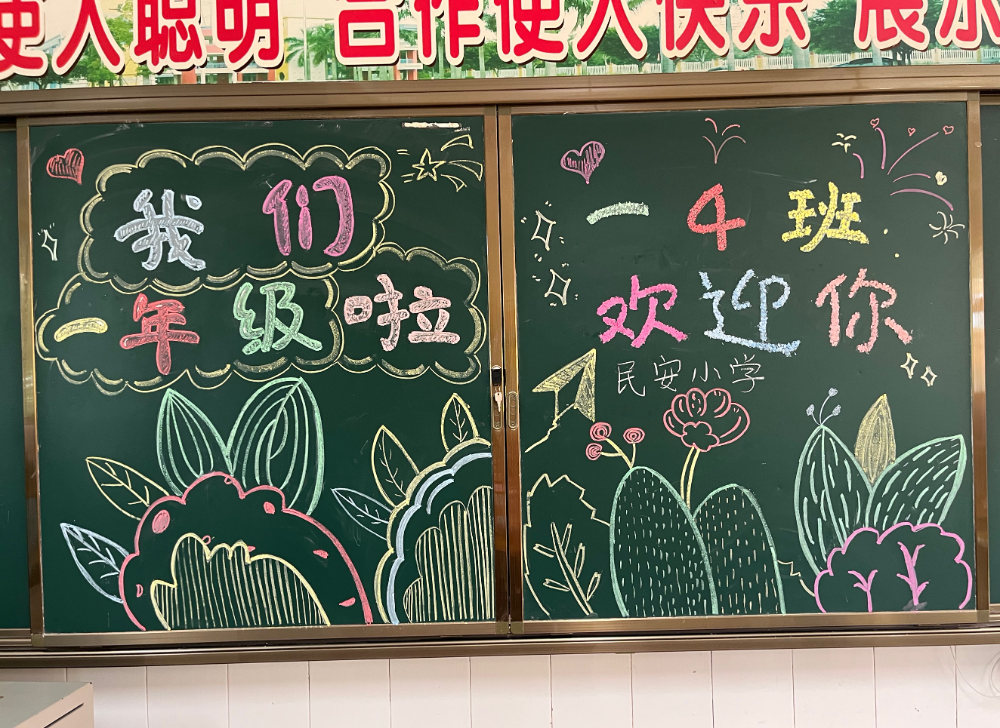 使人聪明 合作使人快乐 展示
我们
一年级啦
一4班
欢迎你
民安小学